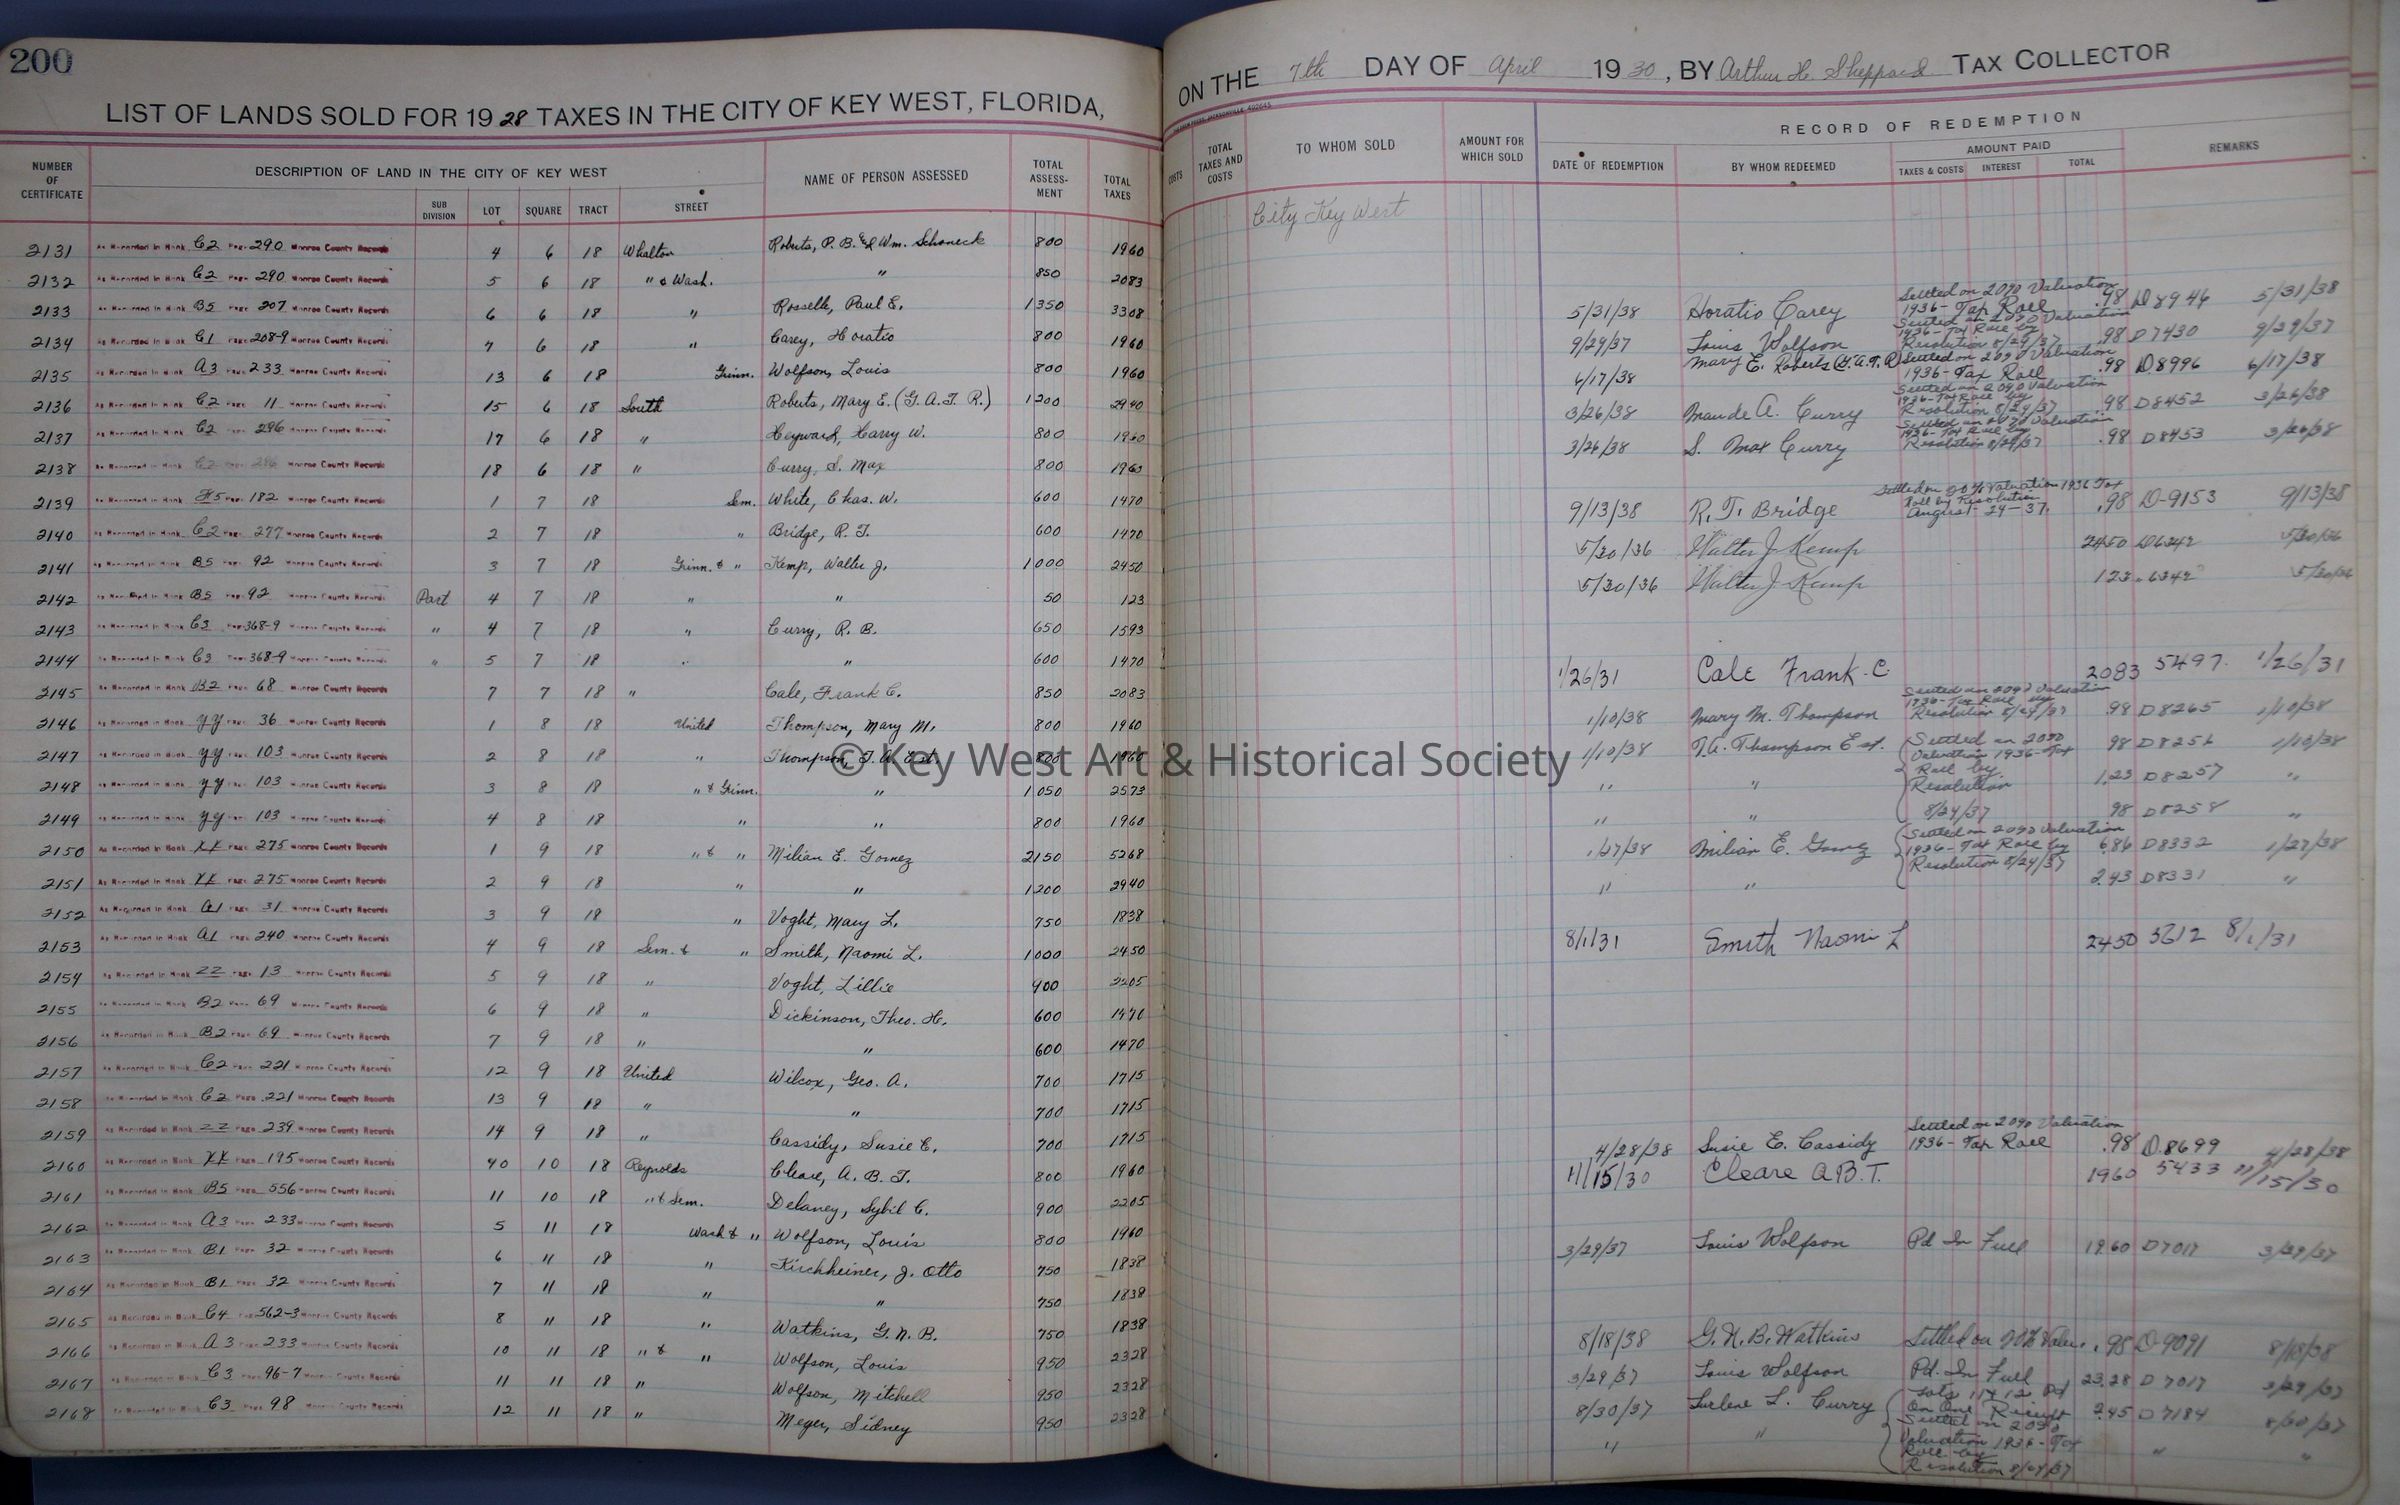 200
LIST OF LANDS SOLD FOR 1928 TAXES IN THE CITY OF KEY WEST, FLORIDA,
ON THE 7th DAY OF April 1930, BY Arthur H. Sheppard TAX COLLECTOR
NUMBER OF CERTIFICATE
DESCRIPTION OF LAND IN THE CITY OF KEY WEST
SUB DIVISION LOT SQUARE TRACT STREET
NAME OF PERSON ASSESSED
TOTAL ASSESSMENT
TOTAL TAXES
COSTS
TOTAL TAXES AND COSTS
TO WHOM SOLD
AMOUNT FOR WHICH SOLD
RECORD OF REDEMPTION
DATE OF REDEMPTION
BY WHOM REDEEMED
AMOUNT PAID
TAXES & COSTS INTEREST TOTAL
REMARKS
City Key West
2131 As Recorded in Book C2 Page 290 Monroe County Records 4 6 18 Whalton Roberts, P. B. & Wm. Schoneck 800 1960
2132 As Recorded in Book C2 Page 290 Monroe County Records 5 6 18 " & Wash. " 850 2083
2133 As Recorded in Book B5 Page 207 Monroe County Records 6 6 18 " Rosselle, Paul E. 1350 3308
2134 As Recorded in Book C1 Page 208-9 Monroe County Records 7 6 18 " Carey, Horatio 800 1960 5/31/38 Horatio Carey Settled on 20% Valuation 1936-Tax Roll .98 D8946 5/31/38
2135 As Recorded in Book A3 Page 233 Monroe County Records 13 6 18 Grinn. Wolfson, Louis 800 1960 9/29/37 Louis Wolfson Settled on 20% Valuation 1936-Tax Roll by Resolution 8/24/37 .98 D7430 9/29/37
2136 As Recorded in Book C2 Page 11 Monroe County Records 15 6 18 South Roberts, Mary E. (G. A. T. R.) 1200 2940 6/17/38 Mary E. Roberts (G.A.T.R) Settled on 20% Valuation 1936-Tax Roll .98 D8996 6/17/38
2137 As Recorded in Book C2 Page 296 Monroe County Records 17 6 18 " Heyward, Harry W. 800 1960 3/26/38 Maude A. Curry Settled on 20% Valuation 1936-Tax Roll by Resolution 8/24/37 .98 D8452 3/26/38
2138 As Recorded in Book C2 Page 296 Monroe County Records 18 6 18 " Curry, S. Max 800 1960 3/26/38 S. Max Curry Settled on 20% Valuation 1936-Tax Roll by Resolution 8/24/37 .98 D8453 3/26/38
2139 As Recorded in Book Page 182 Monroe County Records 1 7 18 Sem. White, Chas. W. 600 1470
2140 As Recorded in Book C2 Page 277 Monroe County Records 2 7 18 " Bridge, R. T. 600 1470 9/13/38 R. T. Bridge Settled on 20% Valuation 1936 Tax Roll by Resolution August-24-37. .98 D-9153 9/13/38
2141 As Recorded in Book B5 Page 92 Monroe County Records 3 7 18 Grinn. & " Kemp, Walter J. 1000 2450 5/30/36 Walter J. Kemp 2450 D6342 5/30/36
2142 As Recorded in Book B5 Page 92 Monroe County Records Part 4 7 18 " " 50 123 5/30/36 Walter J. Kemp 123 " 6342 5/30/36
2143 As Recorded in Book C3 Page 368-9 Monroe County Records " 4 7 18 " Curry, R. B. 650 1593
2144 As Recorded in Book C3 Page 368-9 Monroe County Records " 5 7 18 " " 600 1470
2145 As Recorded in Book B2 Page 68 Monroe County Records 7 7 18 " Cale, Frank C. 850 2083 1/26/31 Cale Frank C. 2083 5497. 1/26/31
2146 As Recorded in Book yy Page 36 Monroe County Records 1 8 18 United Thompson, Mary M. 800 1960 1/10/38 Mary M. Thompson Settled on 20% Valuation 1936-Tax Roll by Resolution 8/24/37 .98 D8265 1/10/38
2147 As Recorded in Book yy Page 103 Monroe County Records 2 8 18 " Thompson, T. A. Est. 800 1960 1/10/38 T.A. Thompson Est. Settled on 20% Valuation 1936-Tax Roll by Resolution 8/24/37 98 D8256 1/10/38
2148 As Recorded in Book yy Page 103 Monroe County Records 3 8 18 " & Grinn. " 1050 2573 " " 1.23 D8257 "
2149 As Recorded in Book yy Page 103 Monroe County Records 4 8 18 " " 800 1960 " " .98 D8258 "
2150 As Recorded in Book XX Page 275 Monroe County Records 1 9 18 " & " Milian E. Gomez 2150 5268 1/27/38 Milian E. Gomez Settled on 20% Valuation 1936-Tax Roll by Resolution 8/24/37 6.86 D8332 1/27/38
2151 As Recorded in Book XX Page 275 Monroe County Records 2 9 18 " " 1200 2940 " " 2.43 D8331 "
2152 As Recorded in Book A1 Page 31 Monroe County Records 3 9 18 " Voght, Mary L. 750 1838
2153 As Recorded in Book A1 Page 240 Monroe County Records 4 9 18 Sem. & " Smith, Naomi L. 1000 2450 8/1/31 Smith Naomi L 2450 3612 8/1/31
2154 As Recorded in Book ZZ Page 13 Monroe County Records 5 9 18 " Voght, Lillie 900 2205
2155 As Recorded in Book B2 Page 69 Monroe County Records 6 9 18 " Dickinson, Theo. H. 600 1470
2156 As Recorded in Book B2 Page 69 Monroe County Records 7 9 18 " " 600 1470
2157 As Recorded in Book C2 Page 221 Monroe County Records 12 9 18 United Wilcox, Geo. A. 700 1715
2158 As Recorded in Book C2 Page 221 Monroe County Records 13 9 18 " " 700 1715
2159 As Recorded in Book ZZ Page 239 Monroe County Records 14 9 18 " Cassidy, Susie E. 700 1715 4/28/38 Susie E. Cassidy Settled on 20% Valuation 1936-Tax Roll .98 D.8699 4/28/38
2160 As Recorded in Book XX Page 195 Monroe County Records 40 10 18 Reynolds Cleare, A. B. T. 800 1960 11/15/30 Cleare A B. T. 1960 5433 11/15/30
2161 As Recorded in Book B5 Page 556 Monroe County Records 11 10 18 " & Sem. Delaney, Sybil C. 900 2205
2162 As Recorded in Book A3 Page 233 Monroe County Records 5 11 18 Wash & " Wolfson, Louis 800 1960 3/29/37 Louis Wolfson Pd In Full 19.60 D7017 3/29/37
2163 As Recorded in Book B1 Page 32 Monroe County Records 6 11 18 " Kirchheiner, J. Otto 750 1838
2164 As Recorded in Book B1 Page 32 Monroe County Records 7 11 18 " " 750 1838
2165 As Recorded in Book C4 Page 562-3 Monroe County Records 8 11 18 " Watkins, G. N. B. 750 1838 8/18/38 G. N. B. Watkins Settled on 20% Value. .98 D-9091 8/18/38
2166 As Recorded in Book A3 Page 233 Monroe County Records 10 11 18 " & " Wolfson, Louis 950 2328 3/29/37 Louis Wolfson Pd. In Full 23.28 D 7017 3/29/37
2167 As Recorded in Book C3 Page 96-7 Monroe County Records 11 11 18 " Wolfson, Mitchell 950 2328 8/30/37 Lurlene L. Curry Lots 11 & 12 Pd On One Receipt Settled on 20% Valuation 1936-Tax Roll by Resolution 8/24/37 2.45 D7184 8/30/37
2168 As Recorded in Book C3 Page 98 Monroe County Records 12 11 18 " Meyer, Sidney 950 2328 " " " "
© Key West Art & Historical Society